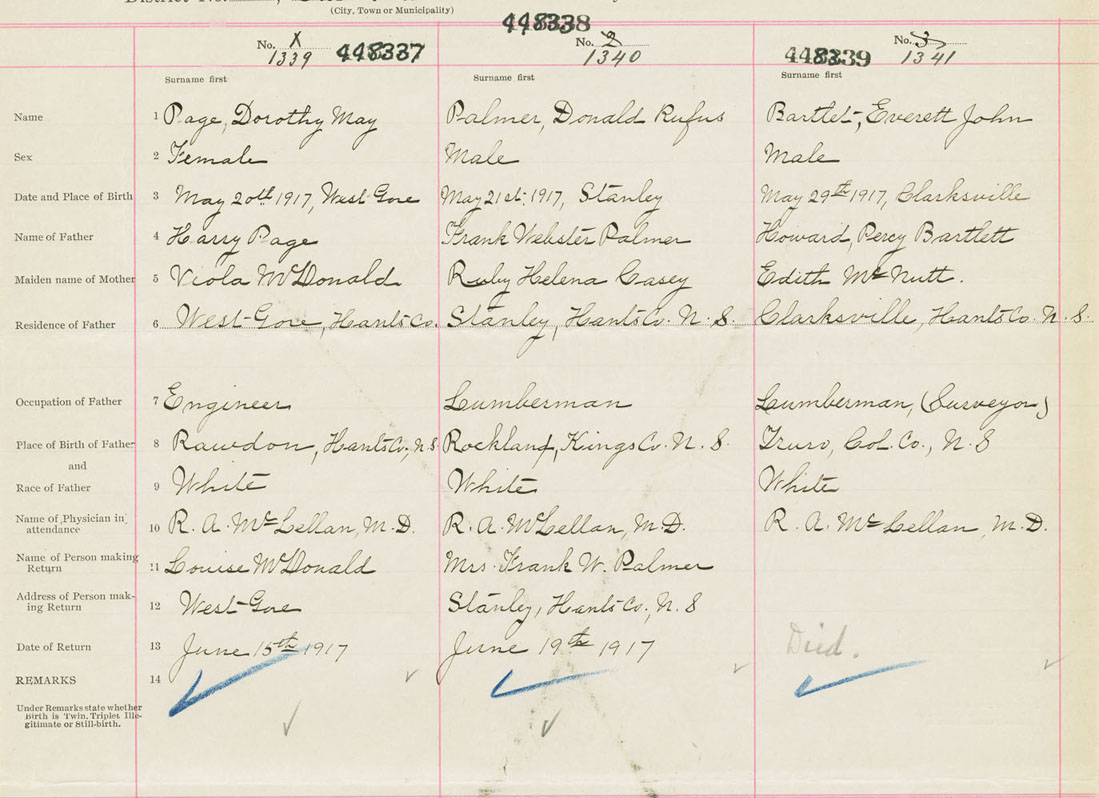 District No.
(City, Town or Municipality)
448338
No. 1 448337 No. 2 No. 3
1339 1340 448339 1341
Surname first Surname first Surname first
Name 1 Page, Dorothy May Palmer, Donald Rufus Bartlet, Everett John
Sex 2 Female Male Male
Date and Place of Birth 3 May 20th 1917, West Gore May 21st, 1917, Stanley May 29th 1917, Clarksville
Name of Father 4 Harry Page Frank Webster Palmer Howard, Percy Bartlett
Maiden name of Mother 5 Viola McDonald Ruby Helena Casey Edith McNutt.
Residence of Father 6 West Gore, Hants Co. Stanley, Hants Co. N. S. Clarksville, Hants Co. N. S.
Occupation of Father 7 Engineer Lumberman Lumberman, (Surveyor)
Place of Birth of Father 8 Rawdon, Hants Co, N.S. Rockland, Kings Co. N. S. Truro, Col. Co., N. S
and
Race of Father 9 White White White
Name of Physician in 10 R. A. McLellan, M.D. R. A. McLellan, M.D. R. A. McLellan, M.D.
attendance
Name of Person making 11 Louise McDonald Mrs. Frank W. Palmer
Return
Address of Person mak- 12 West Gore Stanley, Hants Co., N. S
ing Return
Date of Return 13 June 15th 1917 June 19th 1917 Died.
REMARKS 14
Under Remarks state whether
Birth is Twin, Triplet Ille-
gitimate or Still-birth.